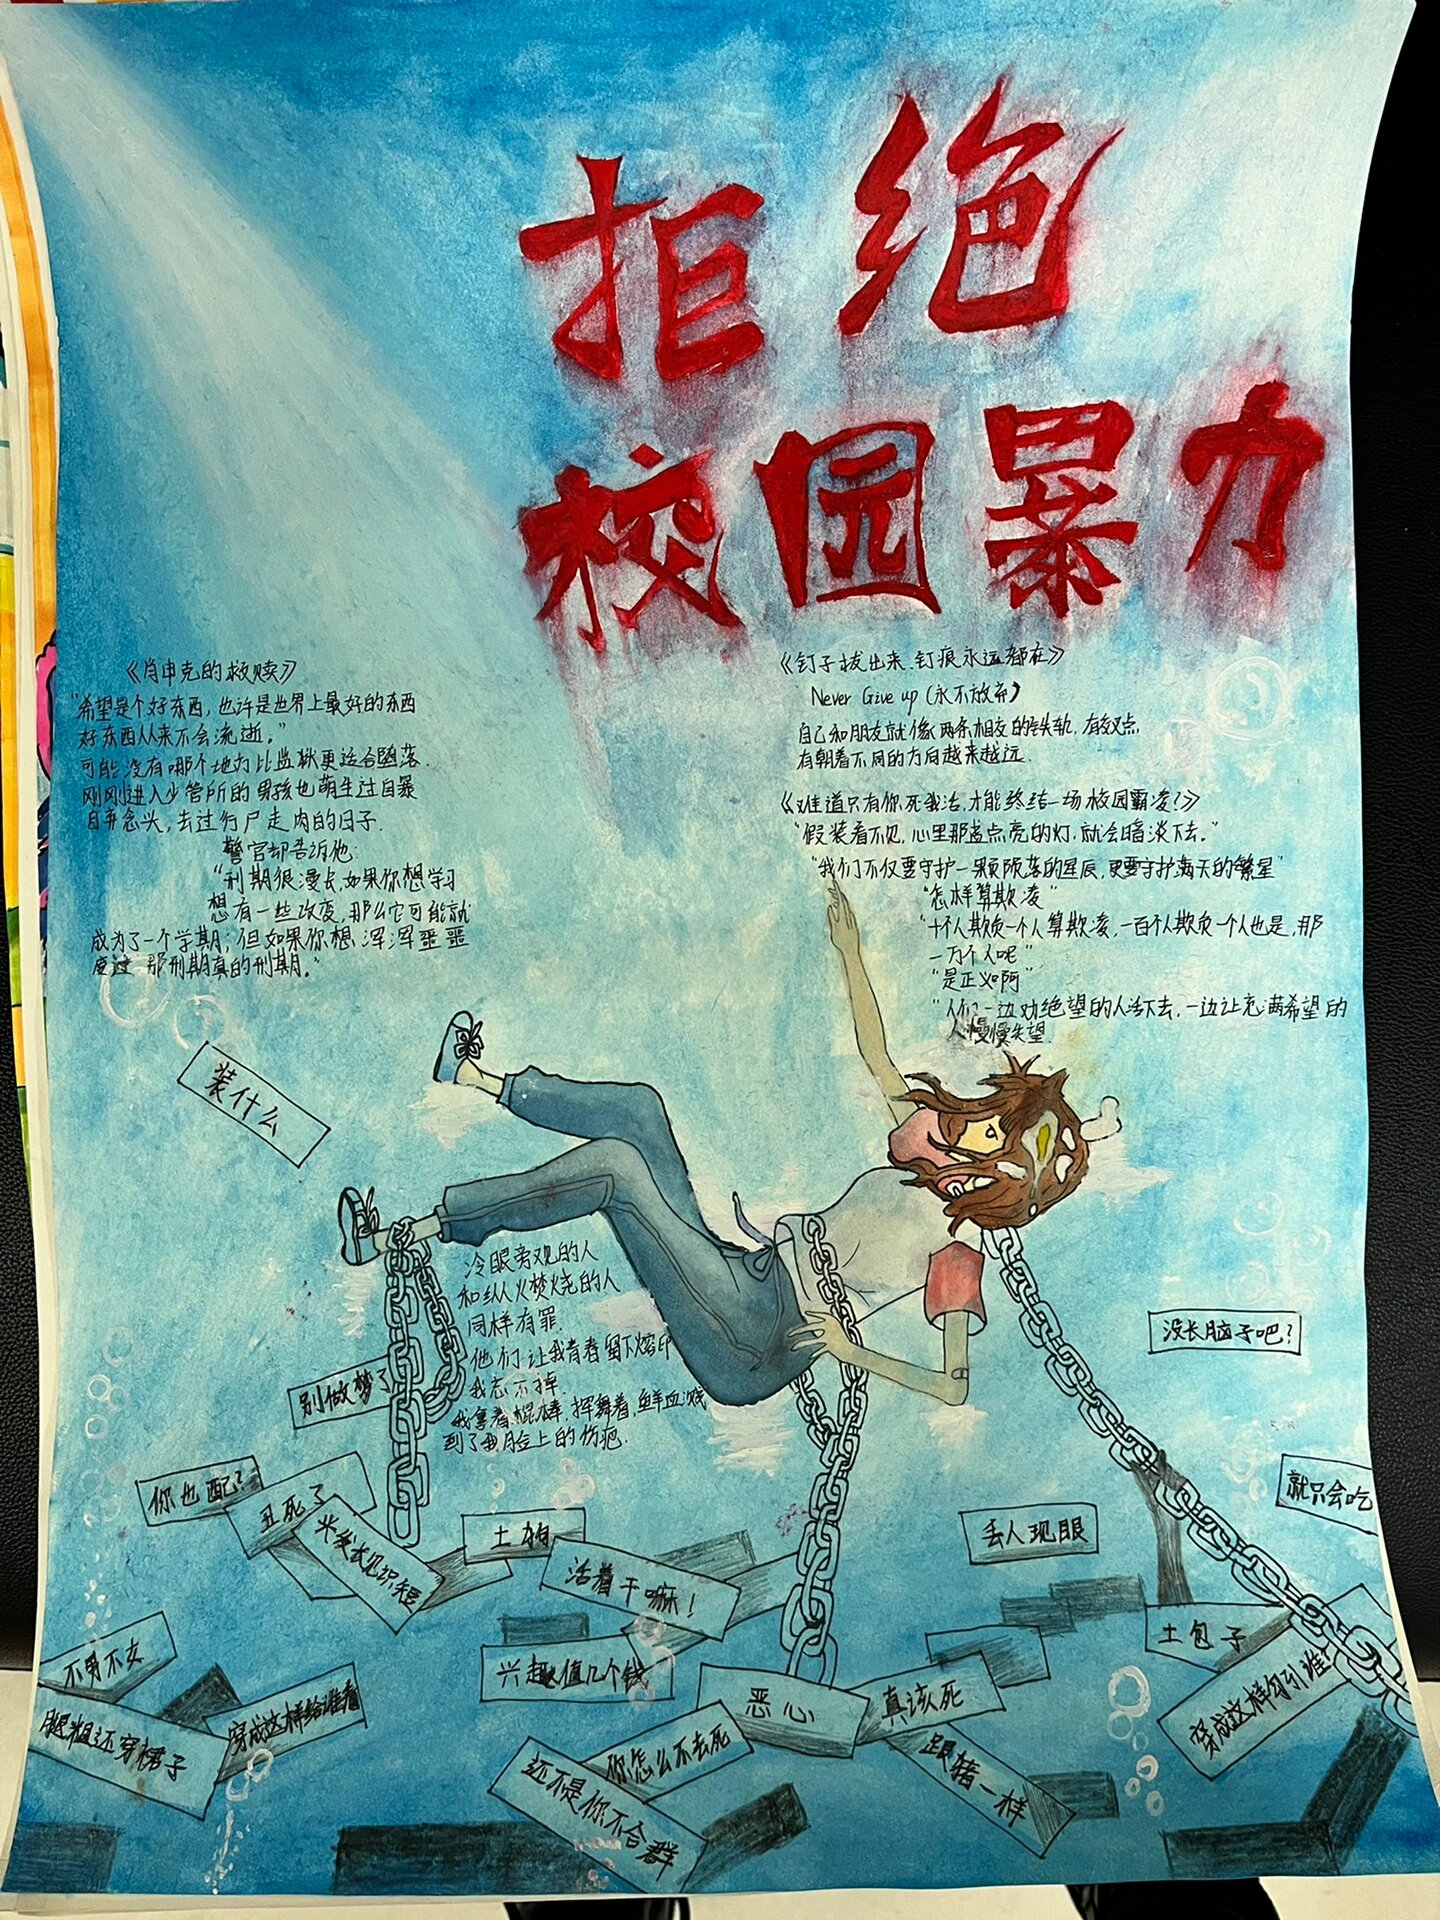 拒绝
校园暴力
《肖申克的救赎》
"希望是个好东西，也许是世界上最好的东西
好东西从来不会流逝。"
可能没有哪个地方比监狱更适合堕落.
刚刚进入少管所的男孩也萌生过自暴
自弃念头，去过行尸走肉的日子.
警官却告诉他:
"刑期很漫长，如果你想学习
想有一些改变，那么它可能就
成为了一个学期；但如果你想浑浑噩噩
度过 那刑期真的刑期."
《钉子拔出来.钉痕永远都在》
Never Give up (永不放弃》
自己和朋友就像两条相交的铁轨.有交点
有朝着不同的方向越来越远.
《难道只有你死我活，才能终结一场校园霸凌？》
"假装看不见，心里那盏点亮的灯.就会暗淡下去."
"我们不仅要守护一颗陨落的星辰，更要守护满天的繁星"
"怎样算欺凌"
"十个人欺负一个人算欺凌，一百个人欺负一个人也是，那
一万个人呢"
"是正义啊"
"人们一边劝绝望的人活下去，一边让充满希望的
人慢慢失望.
装什么
冷眼旁观的人
和纵火焚烧的人
同样有罪.
他们让我青春留下烙印
我忘不掉.
我拿着棍棒.挥舞着，鲜血溅
到了我脸上的伤疤.
没长脑子吧？
别做梦了
你也配？
丑死了
头发长见识短
土狗
活着干嘛！
丢人现眼
就只会吃
不男不女
腿粗还穿裙子
穿成这样给谁看
兴趣值几个钱
恶心
真该死
土包子
穿成这样勾引谁
你怎么不去死
还不是你不合群
跟猪一样